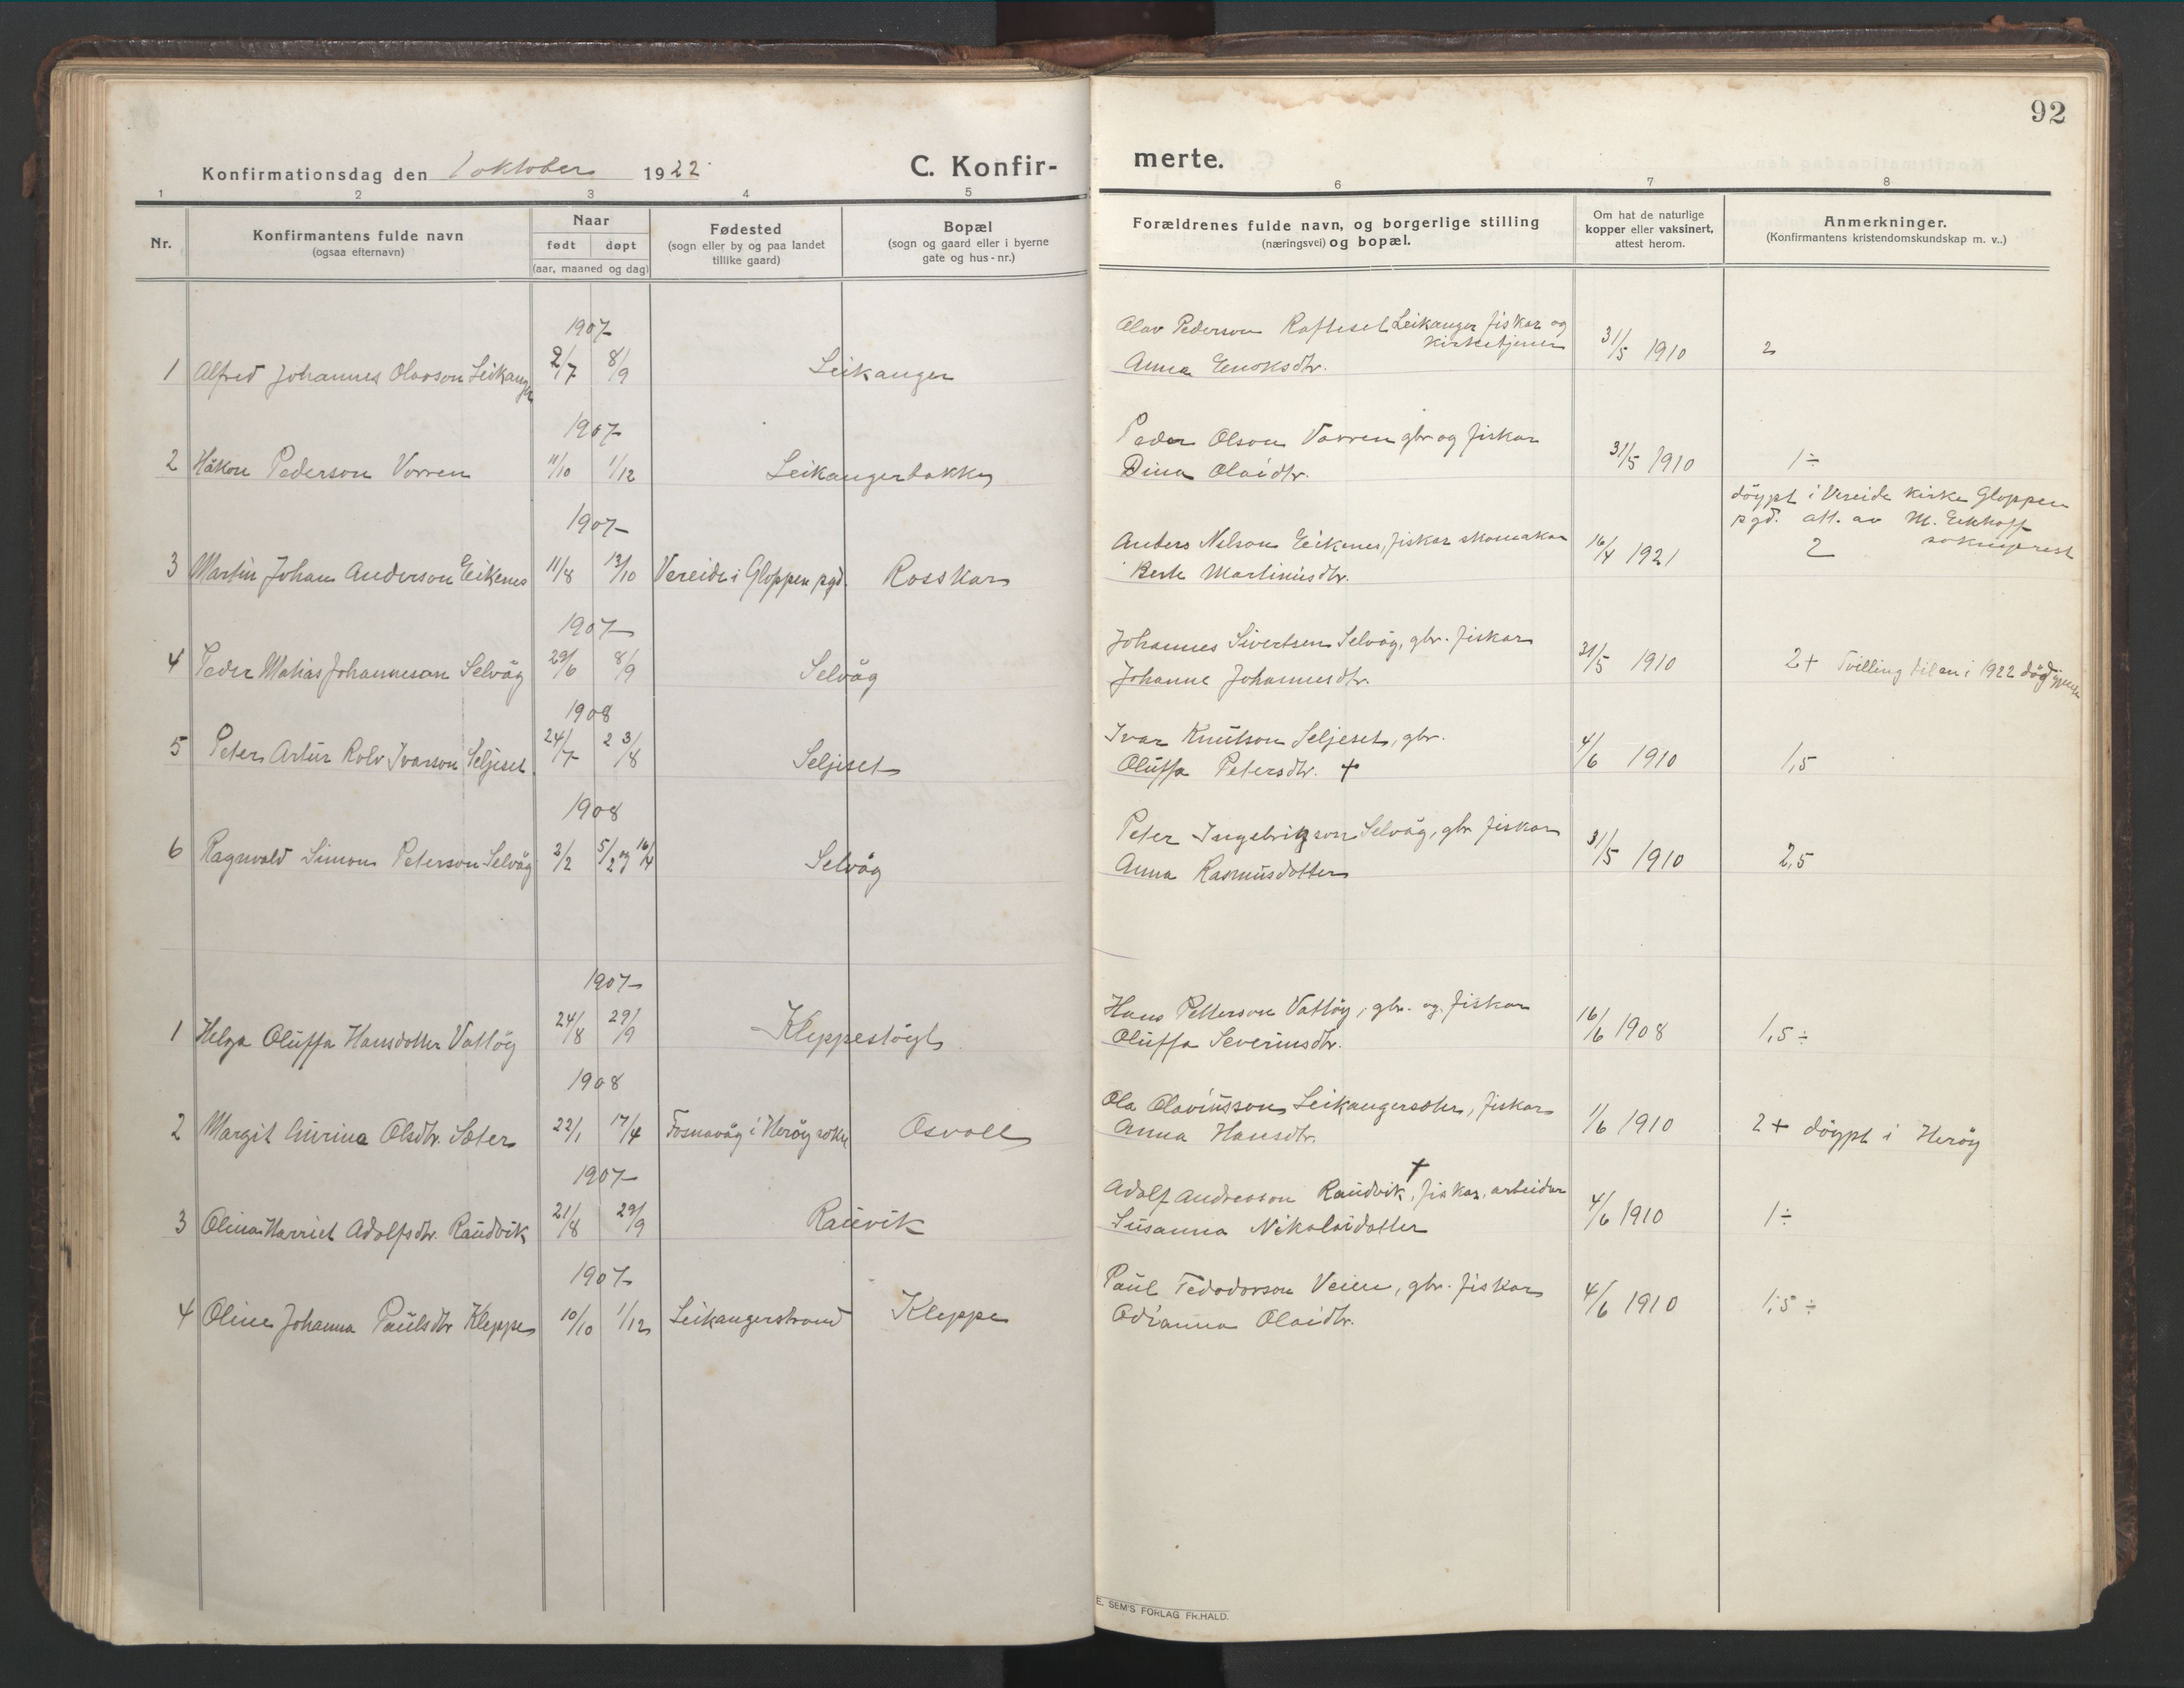 92
Konfirmationsdag den 1 oktober 1922
C. Konfir-
merte.
1 2 3 4 5 6 7 8
Nr.
Konfirmantens fulde navn
(ogsaa efternavn)
Naar
født døpt
(aar, maaned og dag)
Fødested
(sogn eller by og paa landet
tillike gaard)
Bopæl
(sogn og gaard eller i byerne
gate og hus-nr.)
Forældrenes fulde navn, og borgerlige stilling
(næringsvei) og bopæl.
Om hat de naturlige
kopper eller vaksinert,
attest herom.
Anmerkninger.
(Konfirmantens kristendomskundskap m. v..)
1907
1 Alfred Johannes Olavson Leikanger 2/7 8/9 Leikanger
Olav Pederson Rafteset Leikanger fiskar og
kirketjener
Anna Enoksdtr.
31/5 1910 2
1907
2 Håkon Pederson Vorren 11/10 1/12 Leikangerbakke
Peder Olson Vorren gbr og fiskar
Dina Olaidtr.
31/5 1910 1÷
1907
3 Martin Johan Anderson Eikenes 11/8 13/10 Vereide i Gloppen pgd. Rosskar
Anders Nelson Eikenes, fiskar skomakar
Berte Martinusdtr.
16/4 1921
döypt i Vereide kirke Gloppen
pgd. att. av M. Eekhoff
sokneprest
2
1907
4 Peder Matias Johanneson Selvåg 29/6 8/9 Selvåg
Johannes Sivertsen Selvåg, gbr. fiskar
Johanne Johannesdtr.
31/5 1910 2+ Tvilling til en i 1922
1908
5 Peter Artur Rolv Ivarson Seljeset 24/7 23/8 Seljeset
Ivar Knutson Seljeset, gbr.
Oluffa Petersdtr. +
4/6 1910 1,5
1908
6 Ragnvald Simon Peterson Selvåg 2/2 5/2 og 16/4 Selvåg
Peter Ingebrigson Selvåg, gbr fiskar
Anna Rasmusdotter
31/5 1910 2,5
1907
1 Helga Oluffa Hansdotter Vattöy 24/8 29/9 Kleppestöyl
Hans Petterson Vattöy, gbr. og fiskar
Oluffa Severinsdtr.
16/6 1908 1,5 ÷
1908
2 Margit Aurina Olsdtr. Sæter 22/1 17/4 Fosnavåg i Heröy sokn Osvoll
Ola Olavinsson Leikangersæter, fiskar
Anna Hansdtr.
11/6 1910 2+ döypt i Heröy
1907
3 Olina Harriet Adolfsdtr. Raudvik 21/8 29/9 Rauvik
Adolf Andreasson Raudvik +, fiskar, arbeidar
Susanna Nikolaidotter
4/6 1910 1÷
1907
4 Oline Johanna Paulsdtr Kleppe 10/10 1/12 Leikangerstrand Kleppe
Paul Tedodorson Veien, gbr. fiskar
Odianna Olaidtr.
4/6 1910 1,5 ÷
E. SEM'S FORLAG FR.HALD.